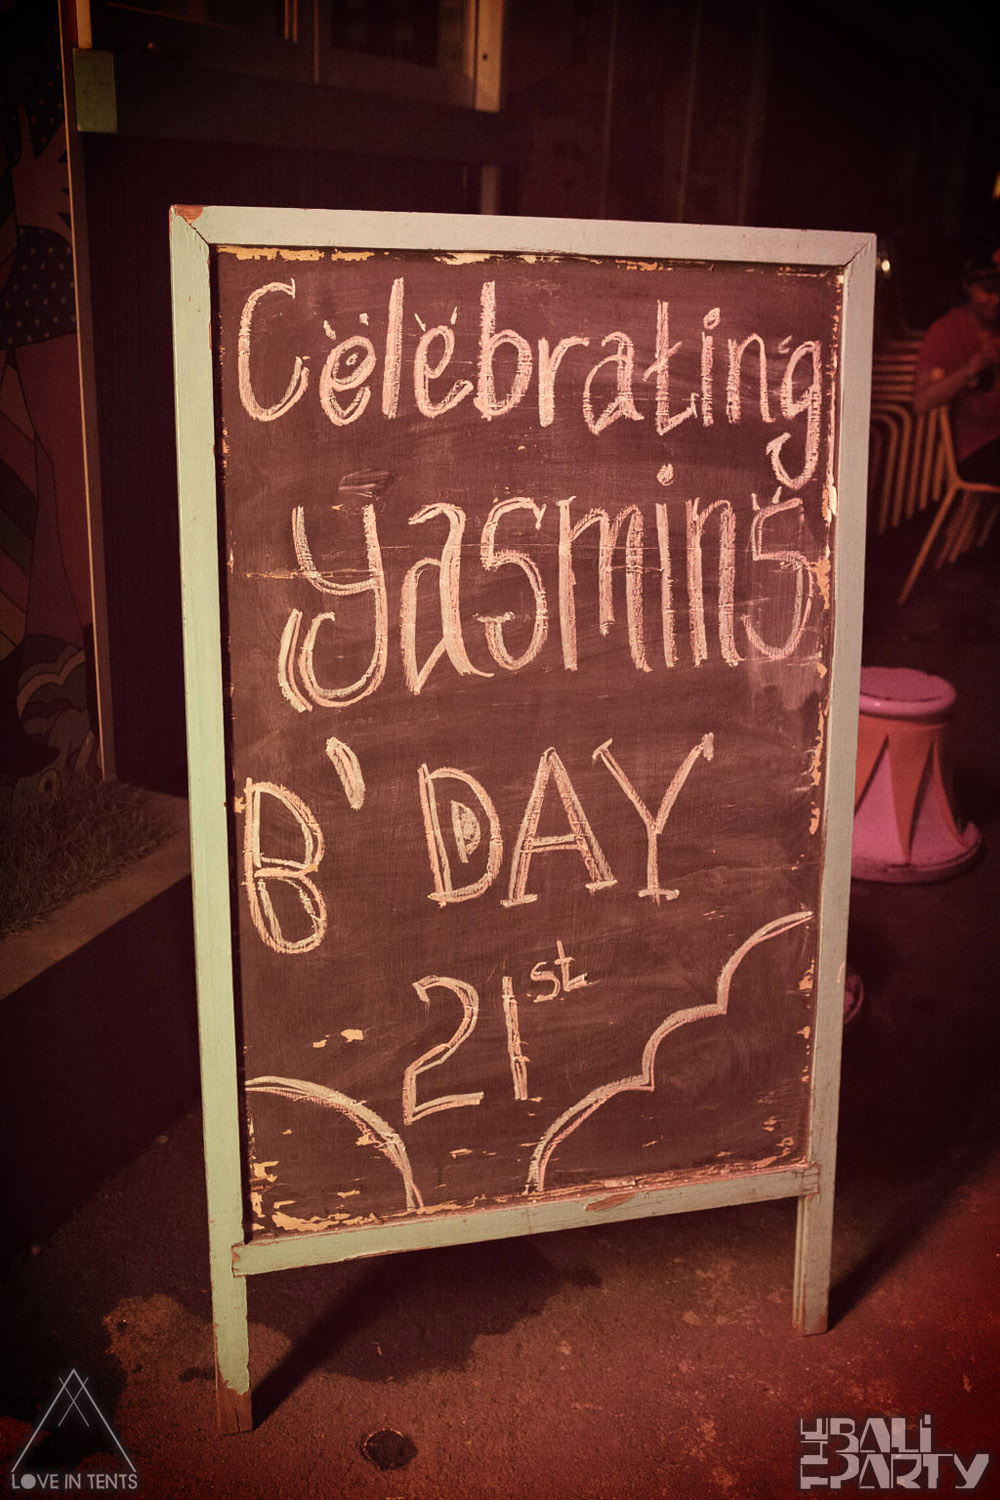 Celebrating
Yasmins
B'DAY
21st
LOVE IN TENTS
THE BALi PARTY